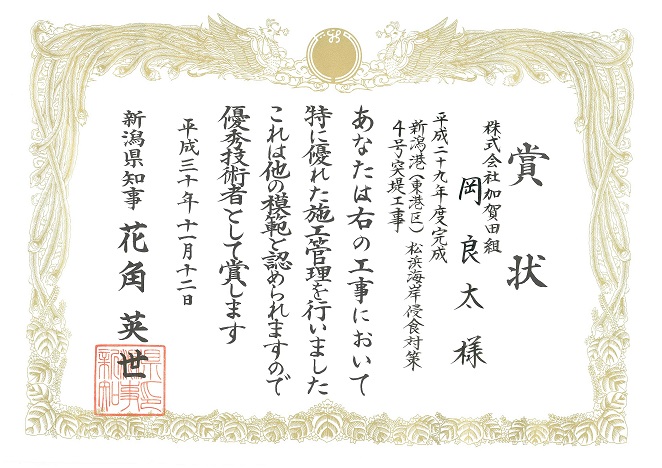 賞状
株式会社加賀田組
岡良太様
平成二十九年度完成
新潟港(東港区)松浜海岸侵食対策
4号突堤工事
あなたは右の工事において
特に優れた施工管理を行いました
これは他の模範と認められますので
優秀技術者として賞します
平成三十年十一月十二日
新潟県知事 花角英世